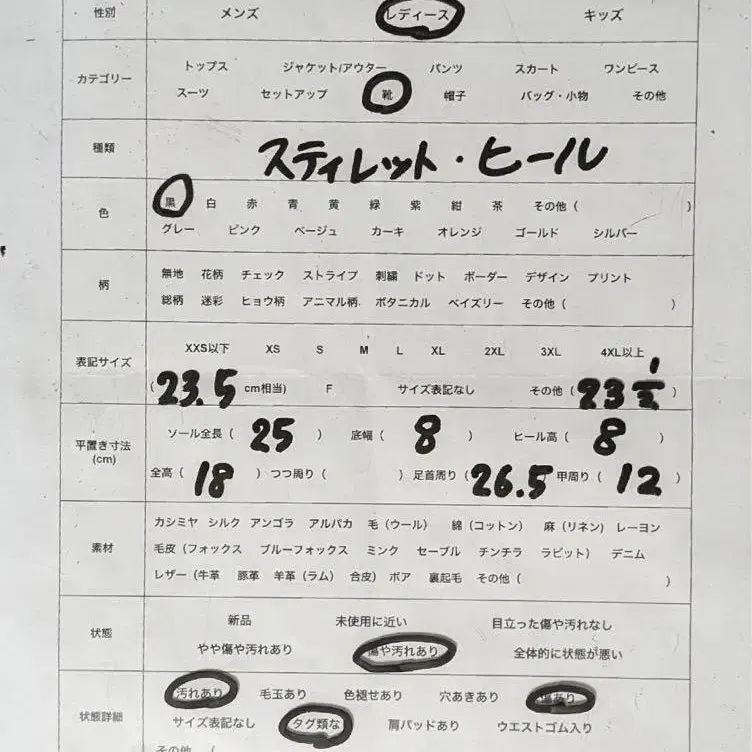 性別 メンズ レディース キッズ
トップス ジャケット/アウター パンツ スカート ワンピース
カテゴリー
スーツ セットアップ 靴 帽子 バッグ・小物 その他
種類 スティレット・ヒール
黒 白 赤 青 黄 緑 紫 紺 茶 その他 ( )
色
グレー ピンク ベージュ カーキ オレンジ ゴールド シルバー
無地 花柄 チェック ストライプ 刺繍 ドット ボーダー デザイン プリント
柄
総柄 迷彩 ヒョウ柄 アニマル柄 ボタニカル ペイズリー その他 ( )
XXS以下 XS S M L XL 2XL 3XL 4XL以上
表記サイズ
( 23.5 cm相当) F サイズ表記なし その他 ( 23 1/2 )
ソール全長 ( 25 ) 底幅 ( 8 ) ヒール高 ( 8 )
平置き寸法
(cm)
全高 ( 18 ) つつ周り ( ) 足首周り ( 26.5 甲周り ( 12 )
カシミヤ シルク アンゴラ アルパカ 毛 (ウール) 綿 (コットン) 麻 (リネン) レーヨン
素材 毛皮 (フォックス ブルーフォックス ミンク セーブル チンチラ ラビット) デニム
レザー (牛革 豚革 羊革 (ラム) 合皮) ボア 裏起毛 その他 ( )
新品 未使用に近い 目立った傷や汚れなし
状態
やや傷や汚れあり 傷や汚れあり 全体的に状態が悪い
汚れあり 毛玉あり 色褪せあり 穴あきあり 傷あり
状態詳細
サイズ表記なし タグ類な 肩パッドあり ウエストゴム入り
その他 (